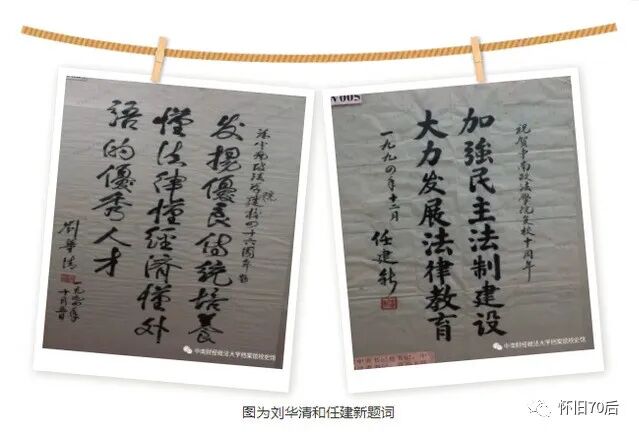 中南政法学院建校四十六周年
发揚優良傳统培養
懂法律懂經濟懂外
語的優秀人才
劉華清
一九九四年
中南财经政法大学档案馆校史馆
V005
祝贺中南政法学院复校十周年
加強民主法制建设
大力发展法律教育
一九九四年十二月
任建新
中南财经政法大学档案馆校史馆
图为刘华清和任建新题词
怀旧70后